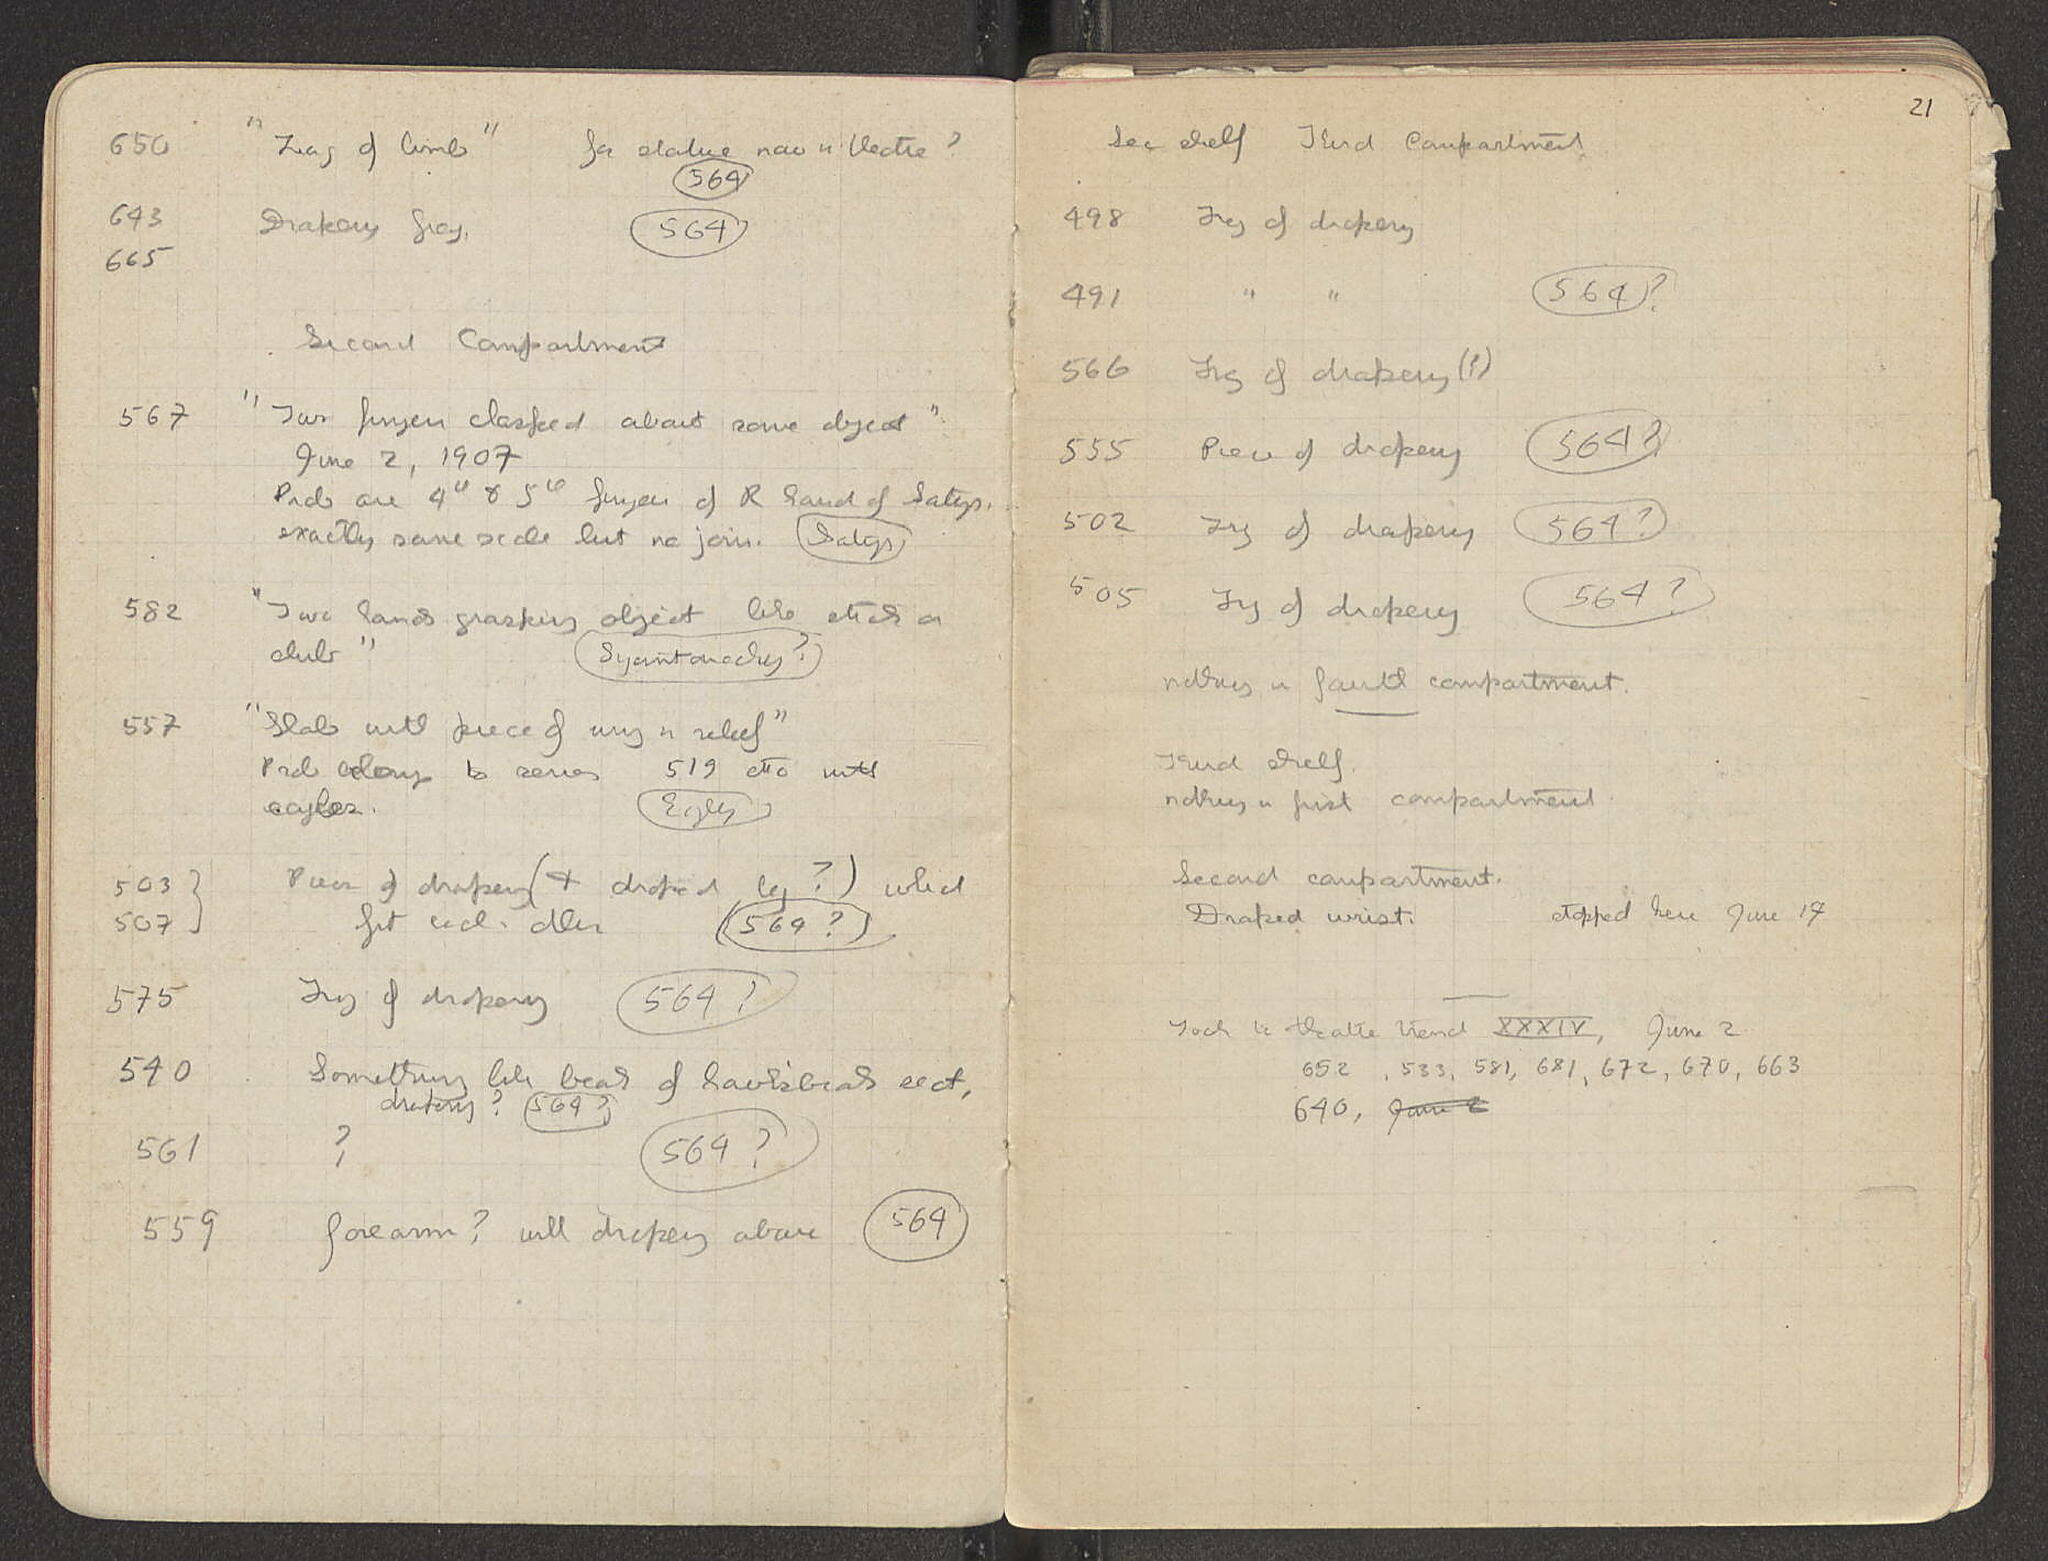 650 "Frag of limb" for statue now in theatre?
564
643 Drapery frag. 564
665
Second Compartment
567 "Two fingers clasped about some object"
June 2, 1907
Prob are 4th & 5th fingers of R hand of Satyr.
exactly same scale but no join. Satyr
582 "Two hands grasping object like stick or
club"
557 "Slab with piece of wing in relief"
Prob belongs to series 519 etc with
eagles. Eagles
503 } Piece of drapery (+ draped leg?) which
507 } fit each other 564?
575 Frg of drapery 564?
540 Something like beak of hawksbeak sect,
drapery? 564?
561 ? 564?
559 forearm? with drapery above 564
21
Sec shelf Third Compartment
498 Frg of drapery
491 " " 564?
566 Frg of drapery (?)
555 Piece of drapery 564?
502 Frg of drapery 564?
505 Frg of drapery 564?
nothing in fourth compartment.
Third shelf.
nothing in first compartment.
Second compartment.
Draped wrist. stopped here June 17
Took to theatre trench XXXIV, June 2
652, 533, 581, 681, 672, 670, 663
640, June 2